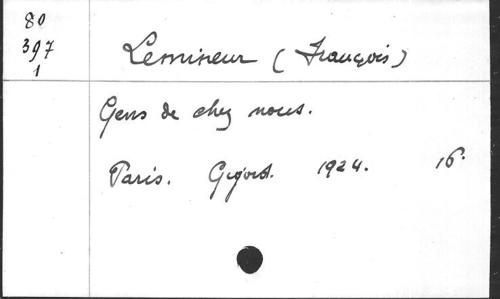 80
397
1
Lemineur (François)
Gens de chez nous.
Paris. Gigord. 1924. 16°